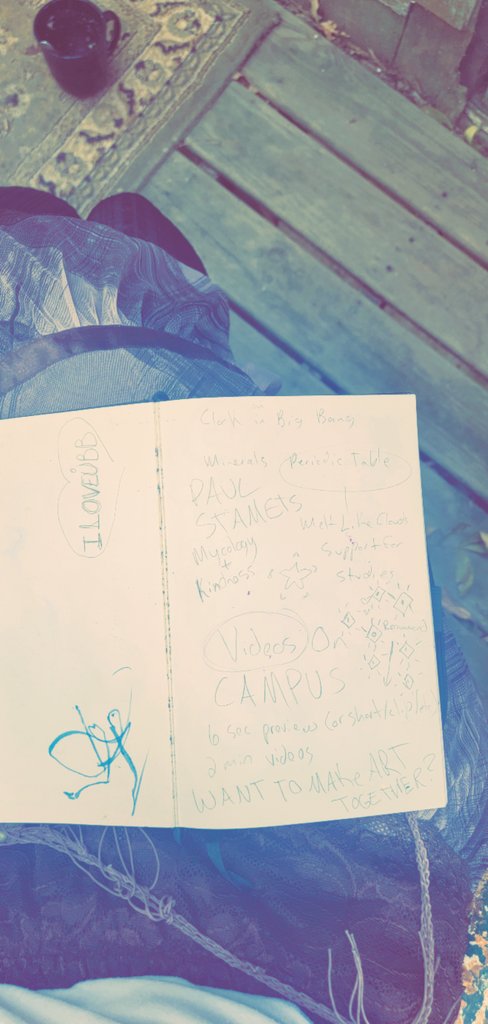 I LOVE U BB
in Big Bang
Minerals
Periodic Table
PAUL
STAMETS
Mycology
+
Kindness
Melt Like Clouds
Support for
studies
Videos On
CAMPUS
6 sec preview (or short/clip
2 min videos
WANT TO MAKE ART
TOGETHER?